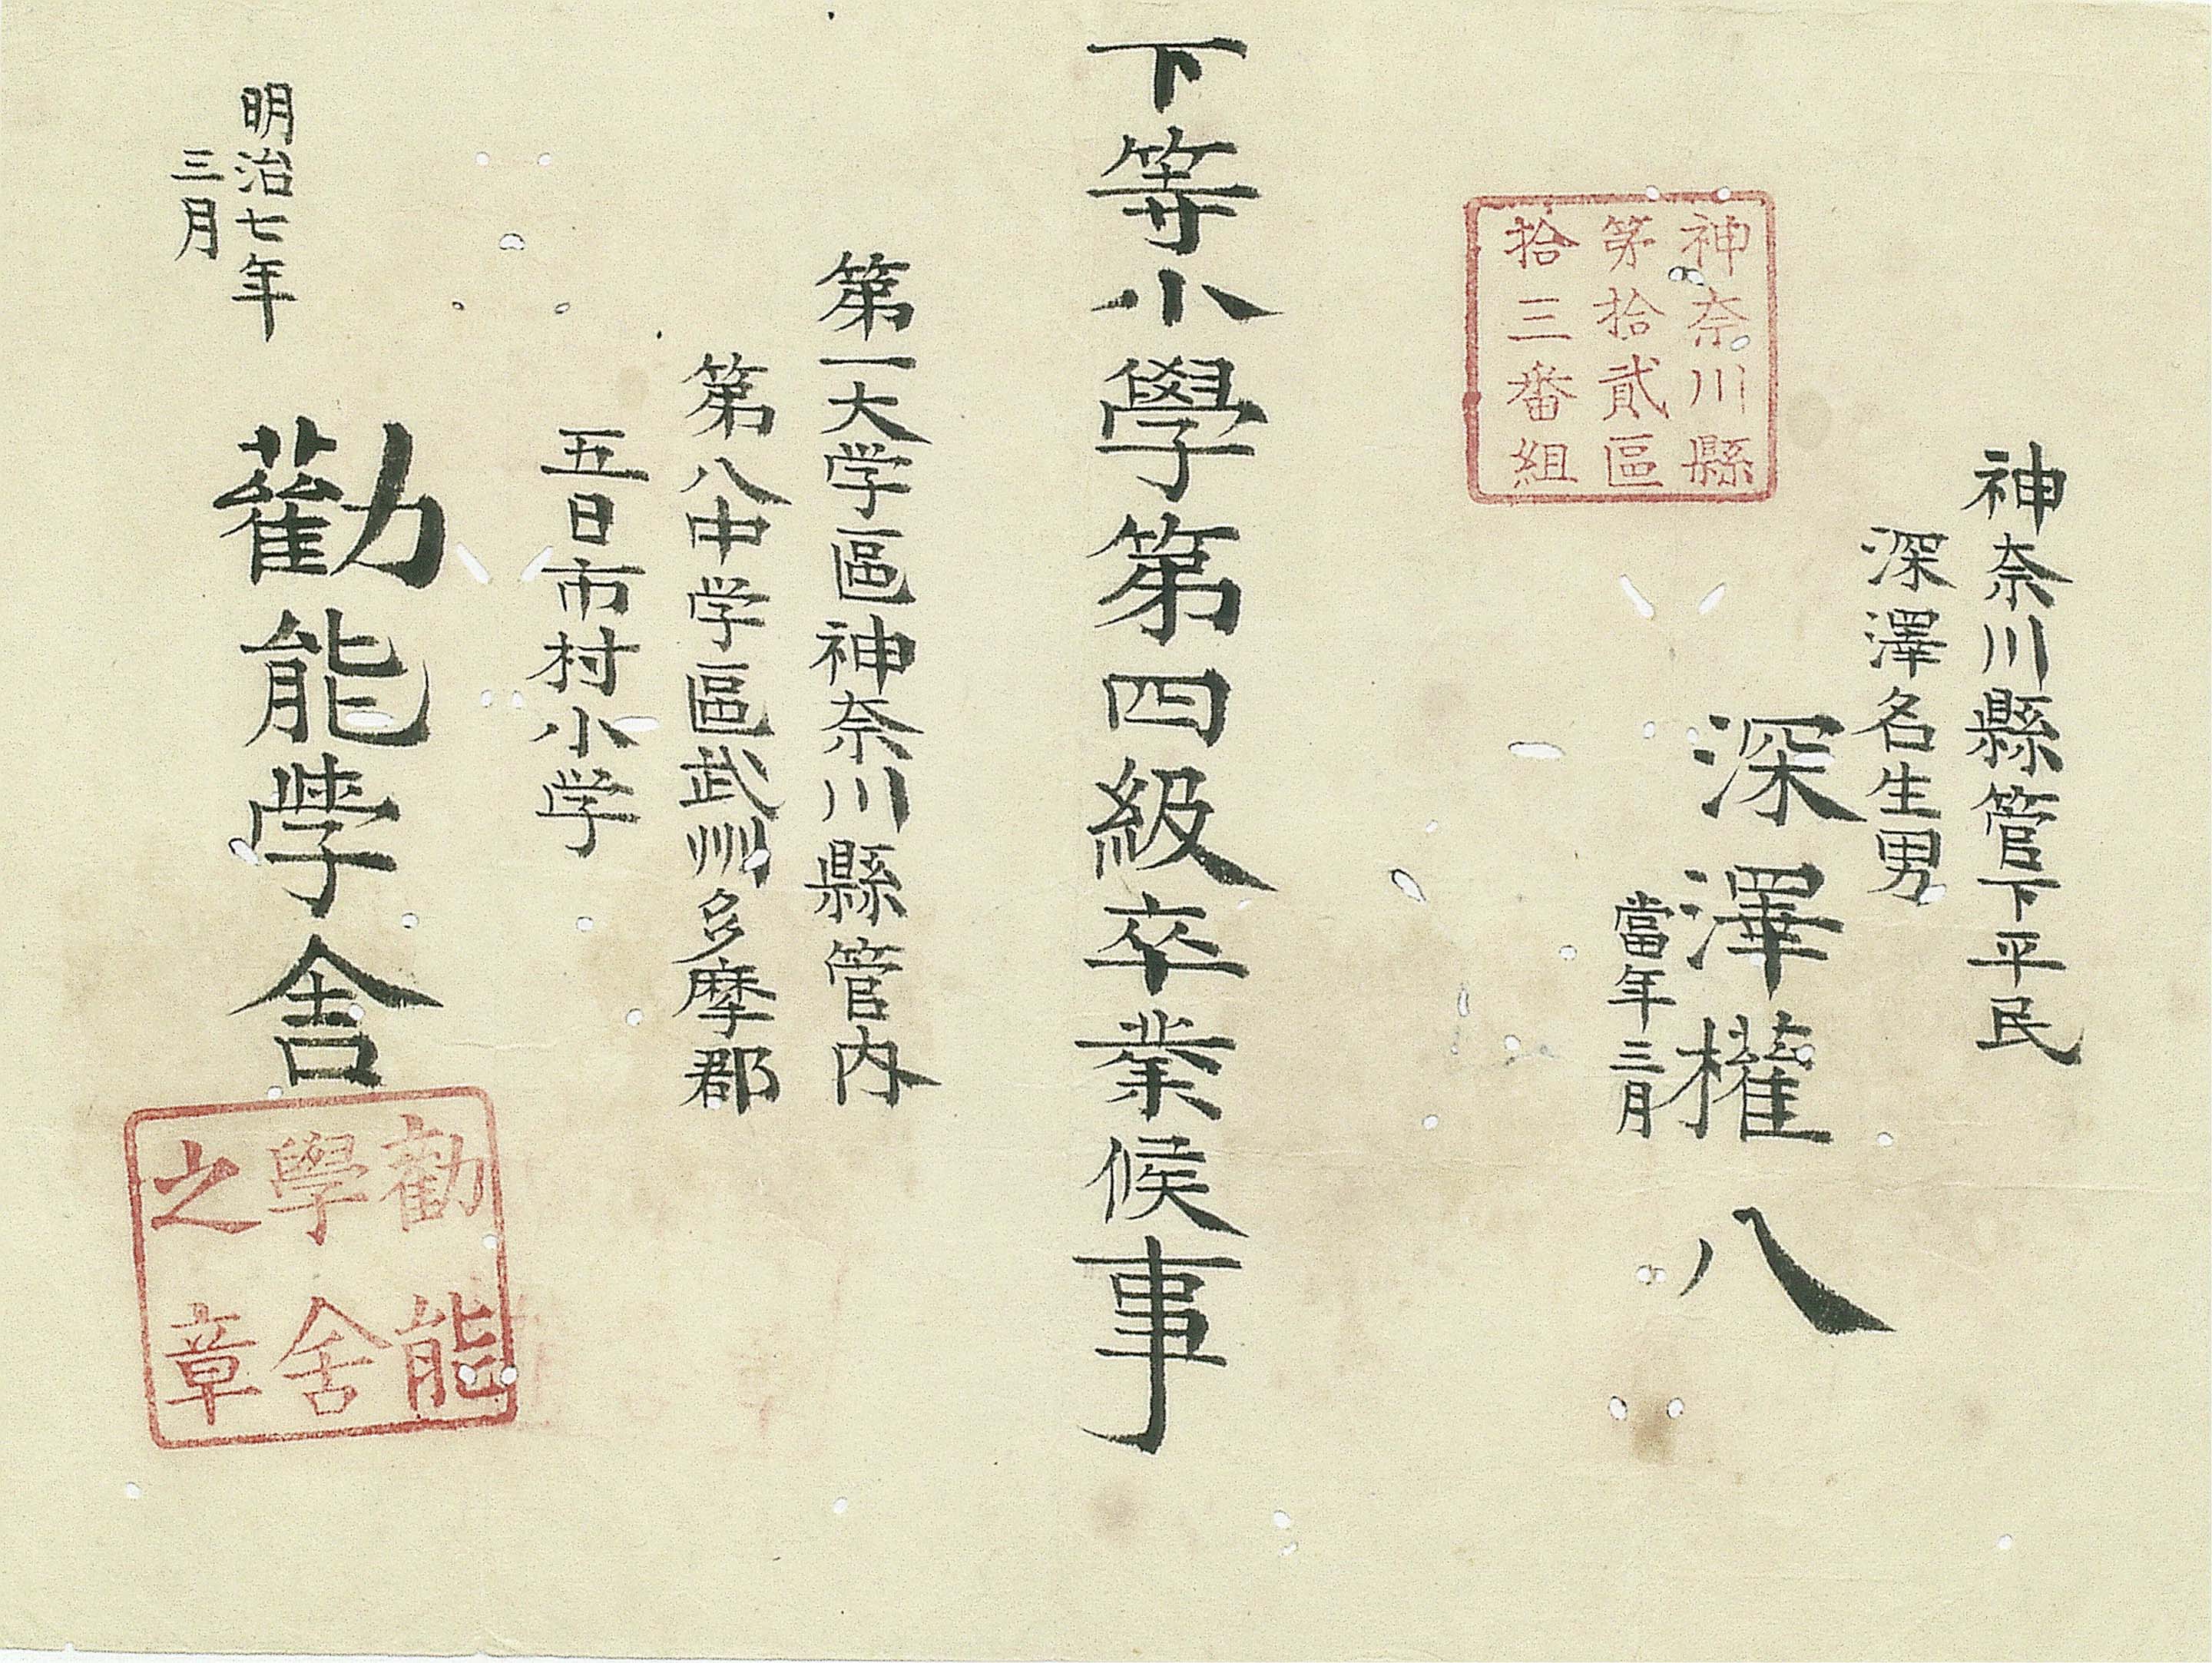 神奈川縣管下平民
深澤名生男
深澤權八
當年三月
神奈川縣
第拾貳區
拾三番組
下等小學第四級卒業候事
第一大学區神奈川縣管内
第八中学區武州多摩郡
五日市村小学
明治七年
三月
勸能学舎
勸能
學舍
之章